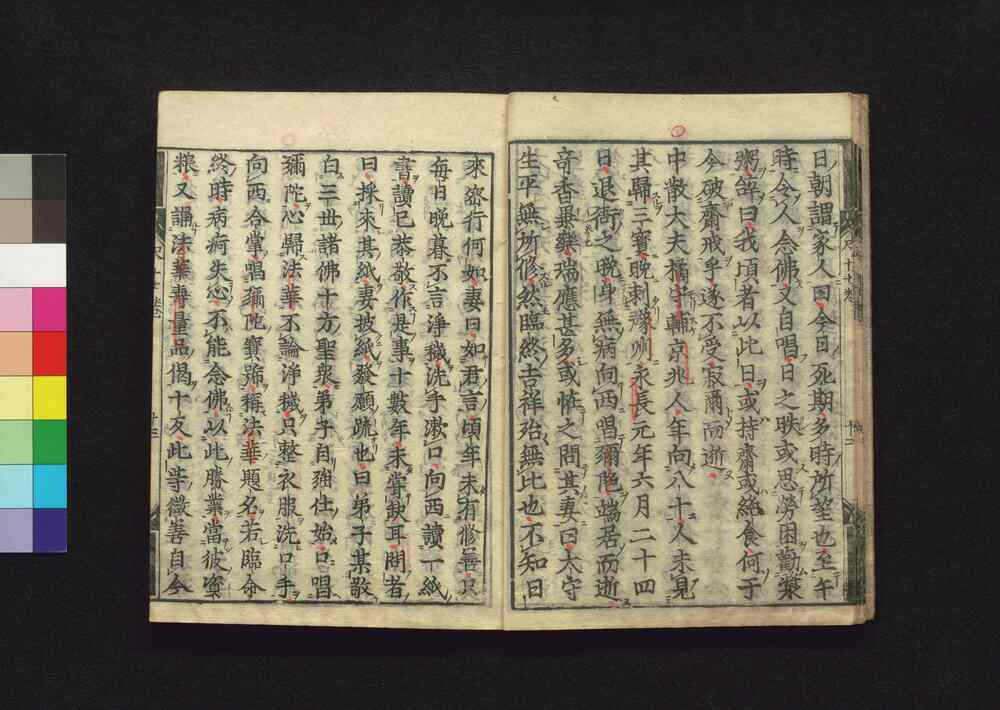 日朝謂家人曰今日死期多時所望也至午
時令人念佛又自唱日之昳或思勞困勸漿
粥辭曰我頃者以此日或持齋或絶食何于
今破齋戒乎遂不受寂爾而逝
中散大夫橘守輔京兆人年向八十人未見
其歸三寶晚刺豫州永長元年六月二十四
日退衙之晚身無病向西唱彌陀端居而逝
奇香異樂瑞應甚多或恠之問其妻曰太守
生平無所修然臨終吉祥殆無比也不知日
來密行何如妻曰如君言頃年未有修善只
每日晚暮不言淨穢洗手漱口向西讀一紙
書讀已恭敬作是事十數年未嘗缺耳問者
曰採來其紙妻披紙發願䟽也曰弟子某敬
白三世諸佛十方聖衆弟子自強仕始口唱
彌陀心歸法華不論淨穢只整衣服洗口手
向西合掌唱彌陀寶號稱法華題名若臨命
終時病痾失心不能念佛以此勝業當彼資
粮又誦法華壽量品偈十反此等微善自今
尺十一卷
十二
十三